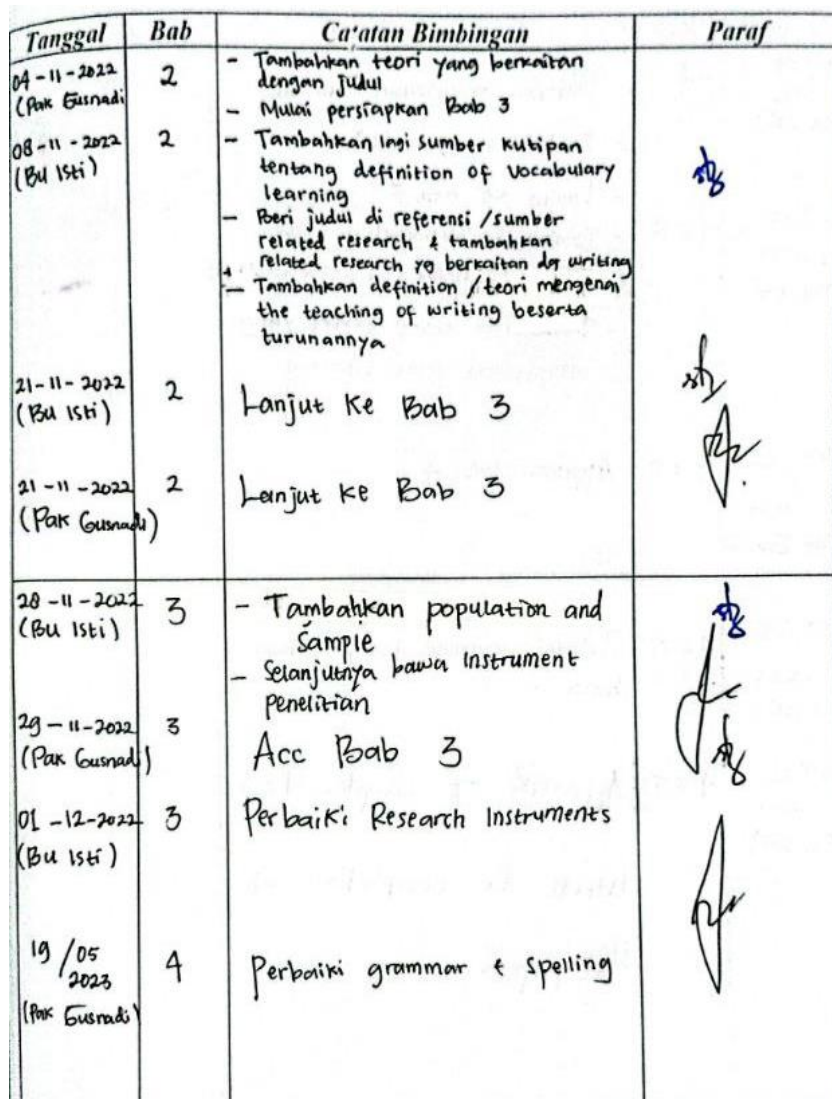 Tanggal Bab Ca'atan Bimbingan Paraf
04-11-2022 2 - Tambahkan teori yang berkaitan
(Pak Gusnadi dengan judul
- Mulai persiapkan Bab 3
08-11-2022 2 - Tambahkan lagi sumber kutipan
(Bu Isti) tentang definition of vocabulary
learning
- Beri judul di referensi / sumber
related research & tambahkan
related research yg berkaitan dg writing
- Tambahkan definition / teori mengenai
the teaching of writing beserta
turunannya
21-11-2022 2 Lanjut ke Bab 3
(Bu Isti)
21-11-2022 2 Lanjut ke Bab 3
(Pak Gusnadi)
28-11-2022 3 - Tambahkan population and
(Bu Isti) Sample
- Selanjutnya bawa Instrument
penelitian
29-11-2022 3
(Pak Gusnadi) Acc Bab 3
01-12-2022 3 Perbaiki Research Instruments
(Bu Isti)
19/05 4 Perbaiki grammar & spelling
2023
(Pak Gusnadi)